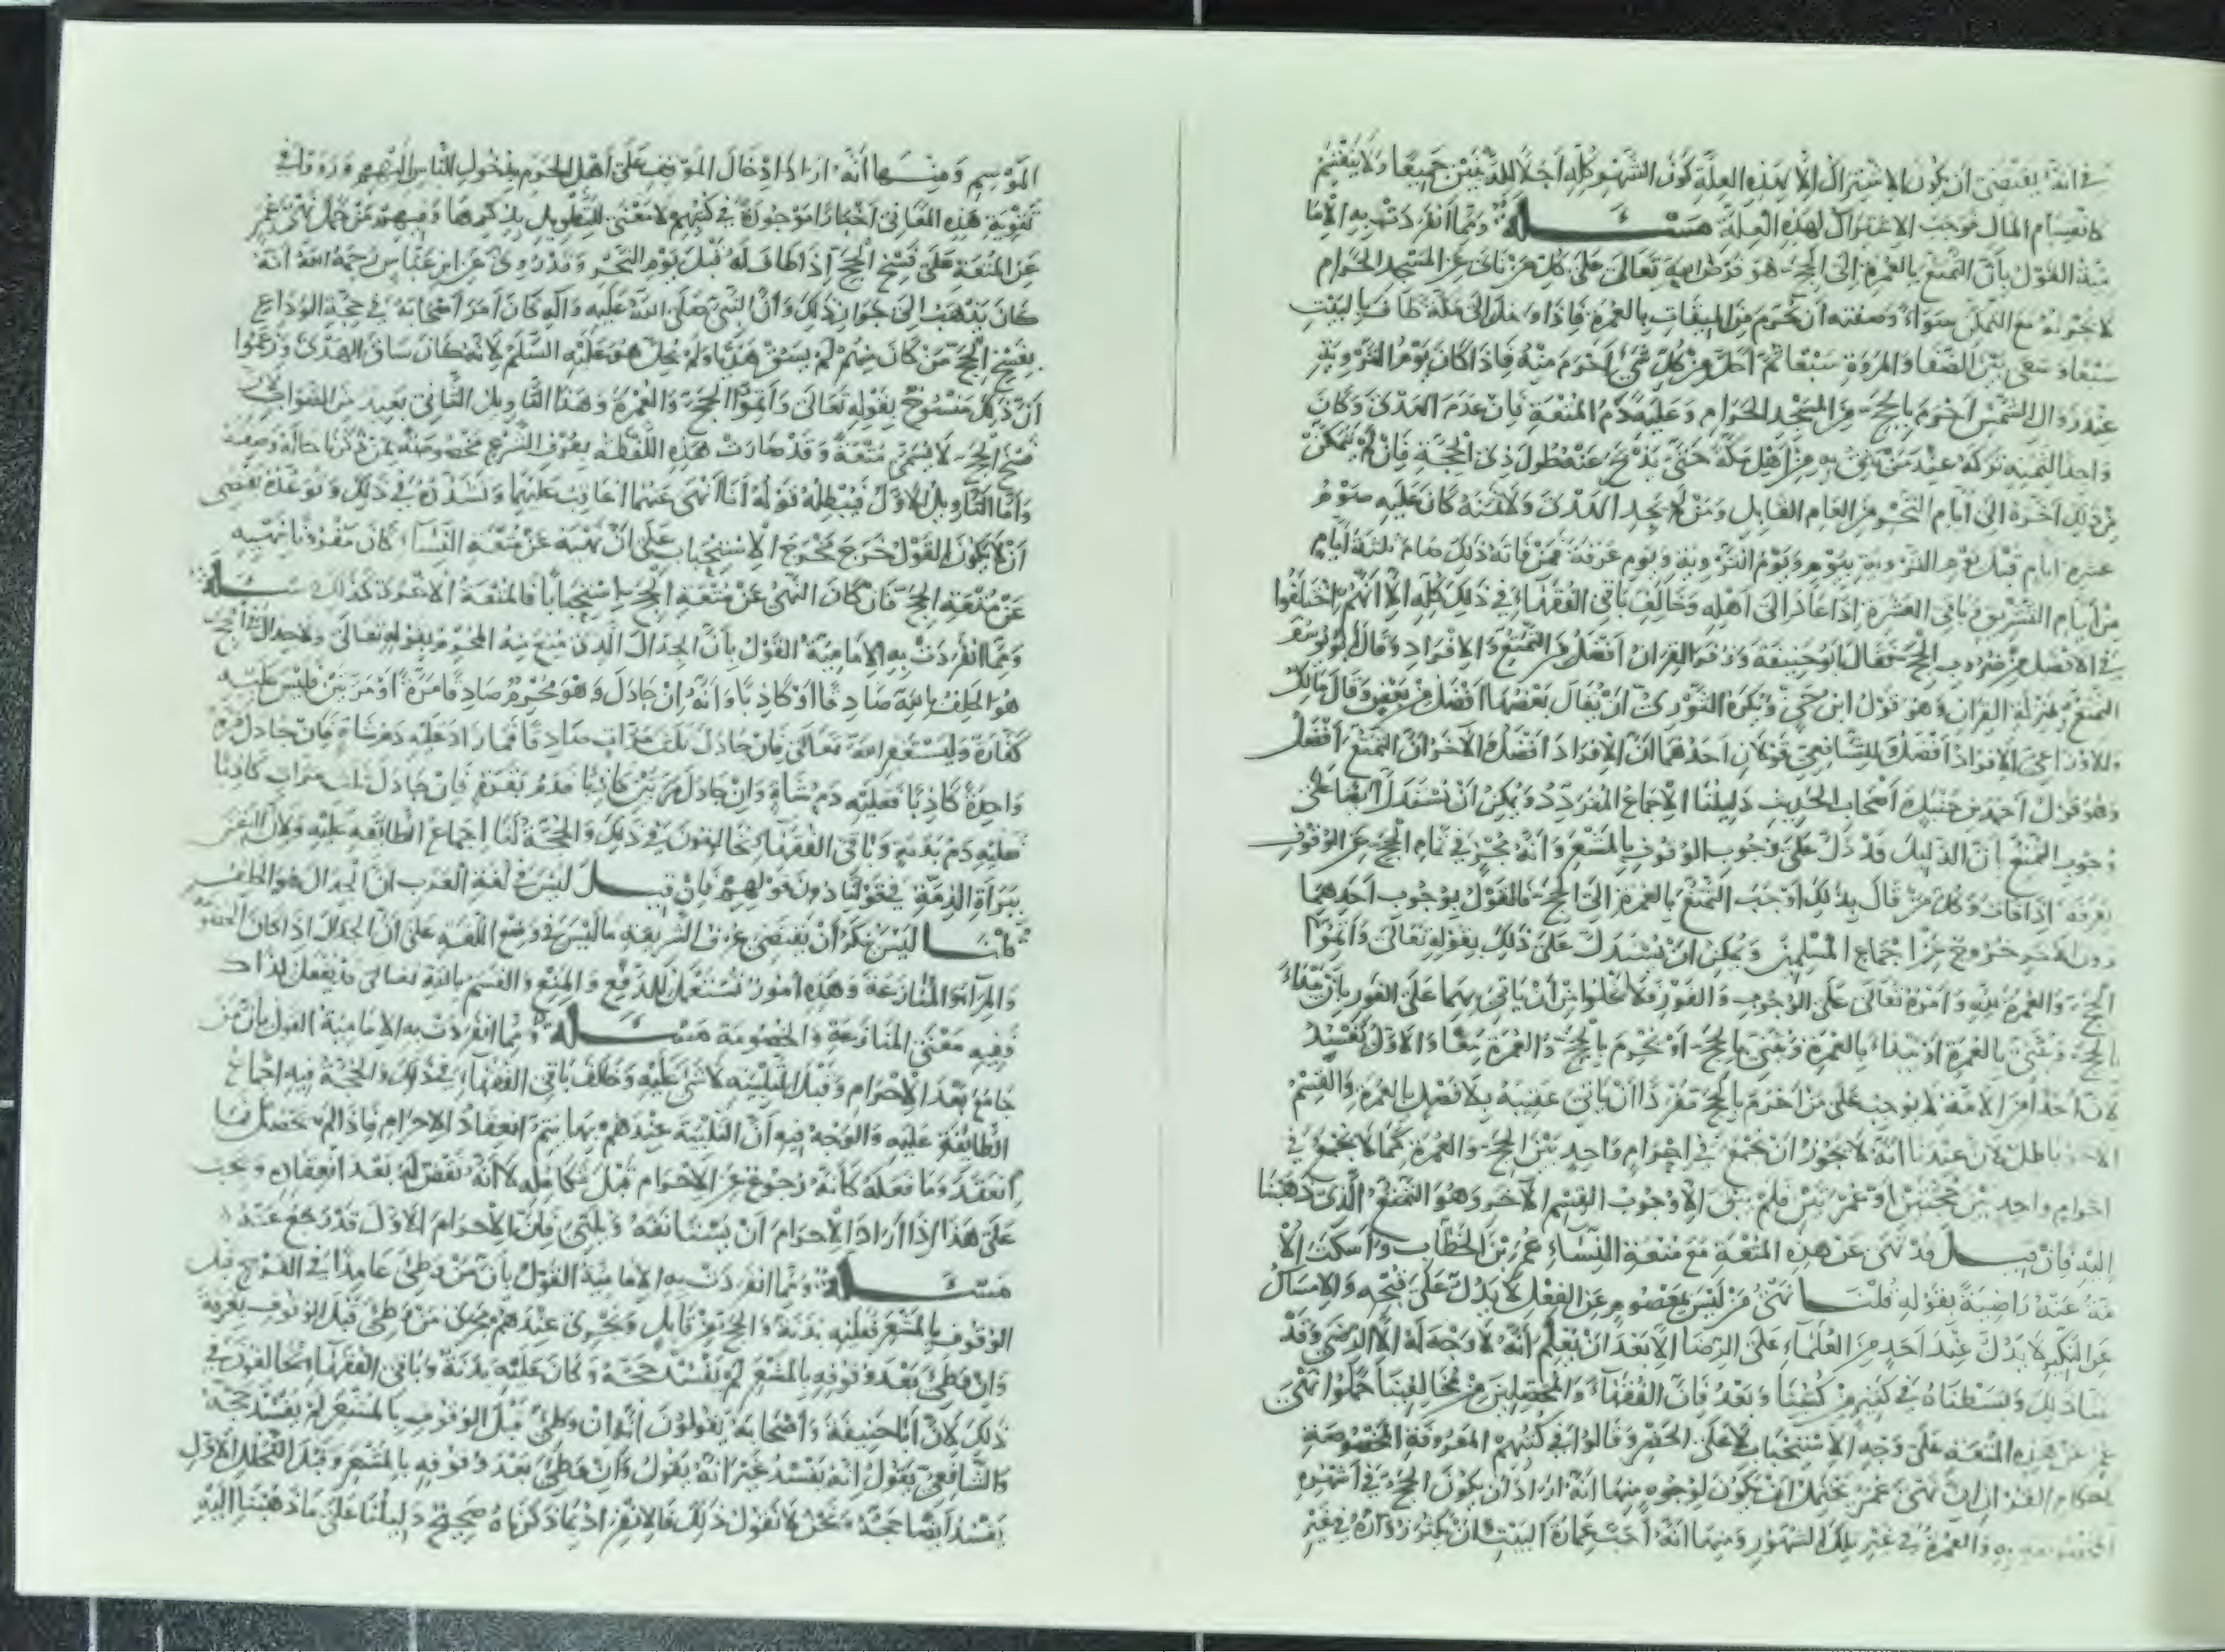 في انه يقتضي ان يكون الاشتراك الا بهذه العلة كون الشهر كله اجلا للدينين جميعا ولا ينقسم
كانقسام المال فوجب الاشتراك لهذه العلة مسئلة ومما انفردت به الاما
مية القول بان التمتع بالعمرة الى الحج هو فرض الله تعالى على كل من نائ عن المسجد الحرام
لا يجزئه مع التمكن سواه وصفته ان يحرم من الميقات بالعمرة فاذا دخل الى مكة طاف بالبيت
سبعا وسعى بين الصفا والمروة سبعا ثم احل من كل شئ احرم منه فاذا كان يوم التروية
عند زوال الشمس احرم بالحج من المسجد الحرام وعليه دم المتعة فان عدم الهدى وكان
واجدا لثمنه تركه عند من يثق به من اهل مكة حتى يذبح عنه طول ذي الحجة فان لم يتمكن
من ذلك اخره الى ايام النحر من العام القابل ومن لم يجد الهدى ولا ثمنه كان عليه صوم
عشرة ايام قبل يوم التروية بيوم ويوم التروية ويوم عرفة فمن فاته ذلك صام ثلثة ايام
من ايام التشريق وباقي العشرة اذا عاد الى اهله وخالف باقي الفقهاء في ذلك كله الا انهم اختلفوا
في الافضل من ضروب الحج فقال ابو حنيفة وزفر القران افضل من التمتع والافراد وقال ابو يوسف
التمتع بمنزلة القران وهو قول ابن حي ويكره الثوري ان يقال بعضها افضل من بعض وقال مالك
والاوزاعي الافراد افضل وللشافعي قولان احدهما ان الافراد افضل والاخر ان التمتع افضل
وهو قول احمد بن حنبل واصحاب الحديث دليلنا الاجماع المتردد ويمكن ان نستدل ايضا على
وجوب التمتع بان الدليل قد دل على وجوب الوقوف بالمشعر وانه مجز في تمام الحج عن الوقوف
بعرفة اذا فات وكل من قال بذلك اوجب التمتع بالعمرة الى الحج فالقول بوجوب احدهما
دون الاخر خروج عن اجماع المسلمين ويمكن ان نستدل على ذلك بقوله تعالى واتموا
الحج والعمرة لله وامره تعالى على الوجوب والفور فلا يخلوا من ان ياتي بهما على الفور بان يبداء
بالحج ويثنى بالعمرة او يبداء بالعمرة ويثنى بالحج او يحرم بالحج والعمرة معا والاول يفسد
لان احدا من الامة لا يوجب على من احرم بالحج مفردا ان ياتي عقيبه بلا فصل بالعمرة والقسم
الاخر باطل لان عندنا انه لا يجوز ان يجمع في احرام واحد بين الحج والعمرة كما لا يجمع في
احرام واحد بين حجتين او عمرتين فلم يبق الا وجوب القسم الاخر وهو التمتع الذي ذهبنا
اليه فان قيل قد نهى عن هذه المتعة مع متعة النساء عمر بن الخطاب وامسكت الا
مة عنه راضية بقوله قلنا نهى من ليس بمعصوم عن الفعل لا يدل على قبحه والامساك
عن النكير لا يدل عند احد من العلماء على الرضا الا بعد ان يعلم انه لا وجه له الا الرضى وقد
بينا ذلك وبسطناه في كثير من كتبنا وبعد فان الفقهاء والمحصلين من مخالفينا حملوا نهى
عمر عن هذه المتعة على وجه الاستحباب لا على الحظر وقالوا في كتبهم المعروفة المخصوصة
باحكام القران ان نهى عمر يحتمل ان يكون لوجوه منها انه اراد ان يكون الحج في اشهره
المخصوصة به والعمرة في غير تلك الشهور ومنها انه احب عمارة البيت وان يكثر زواره في غير
الموسم ومنها انه اراد ادخال المرفق على اهل الحرم بدخول الناس اليهم ورووا في
تقوية هذه المعاني اخبارا موجودة في كتبهم لا معنى للتطويل بذكرها وفيهم من حمل نهى عمر
عن المتعة على فسخ الحج اذا طاف له قبل يوم النحر وقد روى عن ابن عباس رحمة الله انه
كان يذهب الى جواز ذلك وان النبي صلى الله عليه واله كان امر اصحابه في حجة الوداع
بفسخ الحج من كان منهم لم يسق هديا ولم يحل هو عليه السلم لانه كان ساق الهدى وزعموا
ان ذلك منسوخ بقوله تعالى واتموا الحج والعمرة وهذا التاويل الثاني بعيد من الصواب لان
فسخ الحج لا يسمى متعة وقد صارت هذه اللفظة بعرف الشرع مخصوصة بمن ذكرنا حاله وصفته
واما التاويل الاول فيبطله قوله انا انهى عنهما اعاقب عليهما وتشدده في ذلك وتوعده يقتضى
ان لا يكون القول خرج مخرج الاستحباب على ان نهيه عن متعة النساء كان مقرونا بنهيه
عن متعة الحج فان كان النهى عن متعة الحج استحبابا فالمتعة الاخرى كذلك مسئلة
ومما انفردت به الامامية القول بان الجدال الذي منع منه المحرم بقوله تعالى ولا جدال في الحج
هو الحلف بالله صادقا او كاذبا وانه ان جادل وهو محرم صادقا مرة او مرتين فليس عليه
كفارة وليستغفر الله تعالى فان جادل ثلث مرات صادقا فما زاد فعليه دم شاة فان جادل مرة
واحدة كاذبا فعليه دم شاة وان جادل مرتين كاذبا فدم بقرة فان جادل ثلث مرات كاذبا
فعليه دم بدنة وباقي الفقهاء يخالفون في ذلك والحجة لنا اجماع الطائفة عليه ولان اليقين
ببراءة الذمة في قولنا دون قولهم فان قيل ليس في لغة العرب ان الجدال هو الحلف
قلنا ليس ينكر ان يقتضى عرف الشريعة ما ليس في وضع اللغة على ان الجدال اذا كان الخصومة
والمراء والمنازعة وهذه امور تستعمل للدفع والمنع والقسم بالله تعالى قد يفعل لذلك
ففيه معنى المنازعة والخصومة مسئلة ومما انفردت به الامامية القول بان من
جامع بعد الاحرام وقبل التلبية لا شئ عليه وخالف باقي الفقهاء في ذلك والحجة فيه اجماع
الطائفة عليه والوجه فيه ان التلبية عندهم بها يتم انعقاد الاحرام فاذا لم تحصل فما
انعقد وما فعله كانه رجوع عن الاحرام قبل تكامله لا انه نقض له بعد انعقاده ويجب
على هذا اذا اراد الاحرام ان يستانفه ويلبى فان الاحرام الاول قد رجع عنه
مسئلة ومما انفردت به الامامية القول بان من وطئ عامدا في الفرج قبل
الوقوف بالمشعر فعليه بدنة والحج من قابل ويجرى عندهم مجرى من وطئ قبل الوقوف بعرفة
وان وطئ بعد وقوفه بالمشعر لم يفسد حجه وكان عليه بدنة وباقي الفقهاء يخالفون في
ذلك لان ابا حنيفة واصحابه يقولون انه ان وطئ قبل الوقوف بالمشعر لم يفسد حجه
والشافعي يقول انه يفسد غير انه يقول وان وطئ بعد وقوفه بالمشعر وقبل التحلل الاول
يفسد ايضا حجه ونحن لا نقول ذلك فالانفراد بما ذكرناه صحيح دليلنا على ما ذهبنا اليه